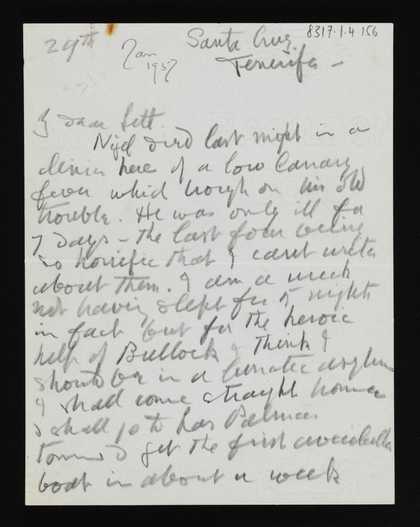 8317.1.4 156
29th Jan 1937
Santa Cruz
Tenerife -
My dear
Nigel died last night in a
clinic here of a low Canary
fever which brought on his old
trouble. He was only ill for
7 days - the last four being
so horrific that I can't write
about them. I am a wreck
not having slept for 5 nights
in fact but for the heroic
help of Bullock I think I
should be in a lunatic asylum
I shall come straight home
I shall go to Las Palmas
to get the first available
boat in about a week